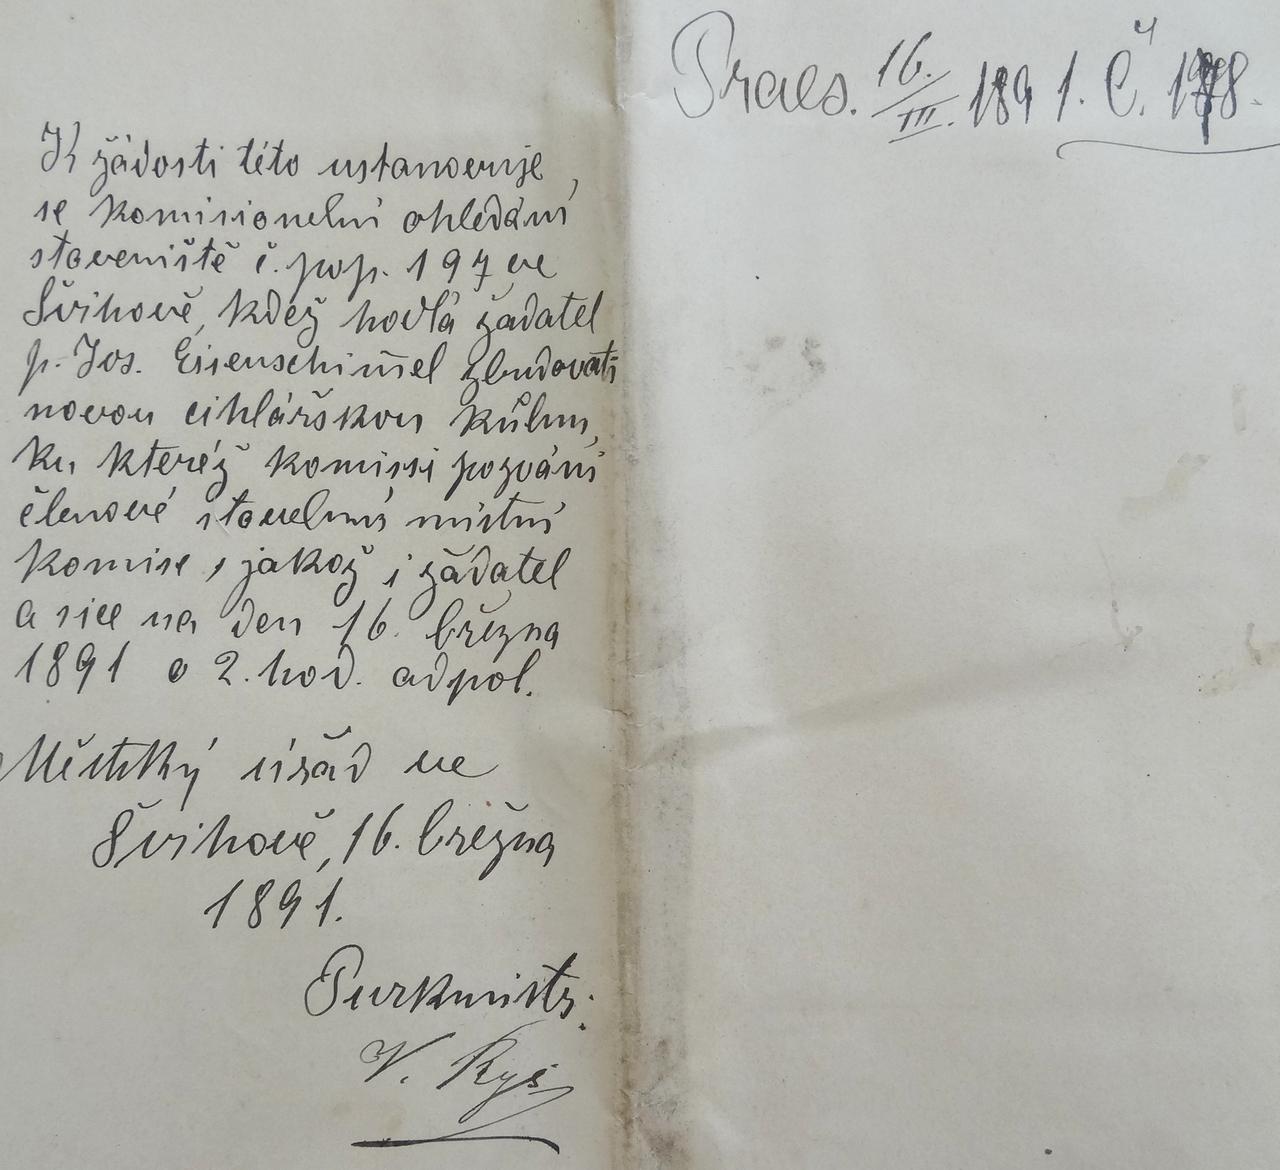 Praes. 16./III. 1891. Č.
K žádosti této ustanovuje
se komisionelní ohledání
staveniště č. pop. 197 ve
Švihově, kdež hodlá žadatel
p. Jos. Eisenschimel zbudovati
novou cihlářskou kůlnu,
ku kteréž komissi pozváni
členové stavební místní
komise, jakož i žadatel
a sice na den 16. března
1891 o 2. hod. odpol.
Městský úřad ve
Švihově, 16. března
1891.
Purkmistr:
V. Ryš